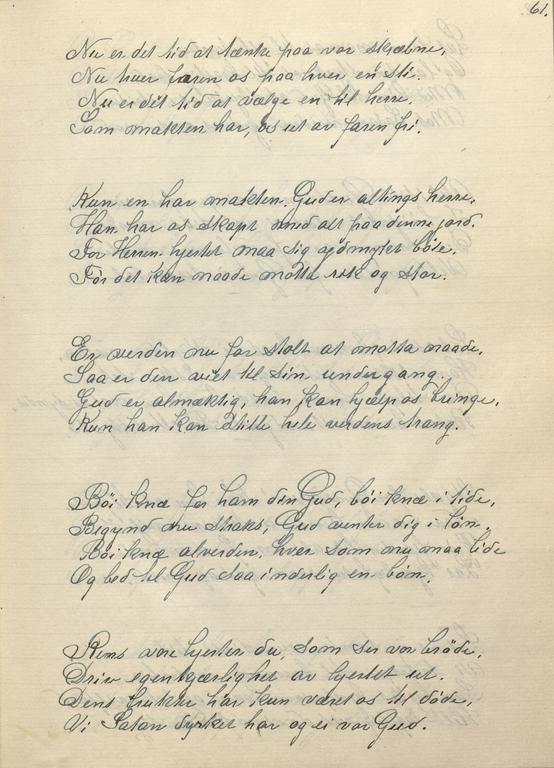 61.
Nu er det tid at tænke paa vor skjæbne,
Nu truer faren os paa hver en sti.
Nu er det tid at vælge en til herre,
Som makten har, os ut av faren fri.
Kun en har makten. Gud er altings herre.
Han har os skapt med alt paa denne jord.
For Herren hjertet maa sig ydmyket böie.
Før det kan naade motta rik og stor.
Er verden nu for stolt at motta naade,
Saa er den viet til sin undergang.
Gud er almæktig, han kan hjælp os bringe,
Kun han kan stille hele verdens trang.
Böi knæ for ham din Gud, böi knæ i tide,
Begynd nu straks, Gud venter dig i løn.
Böi knæ alverden, hver som nu maa lide
Og bed til Gud saa inderlig en bøn.
Rens vore hjerter du, som ser vor bröde,
Driv egenkjærlighet av hjertet ut.
Dens frukter har kun været os til döde,
Vi Satan dyrket har og ei vor Gud.